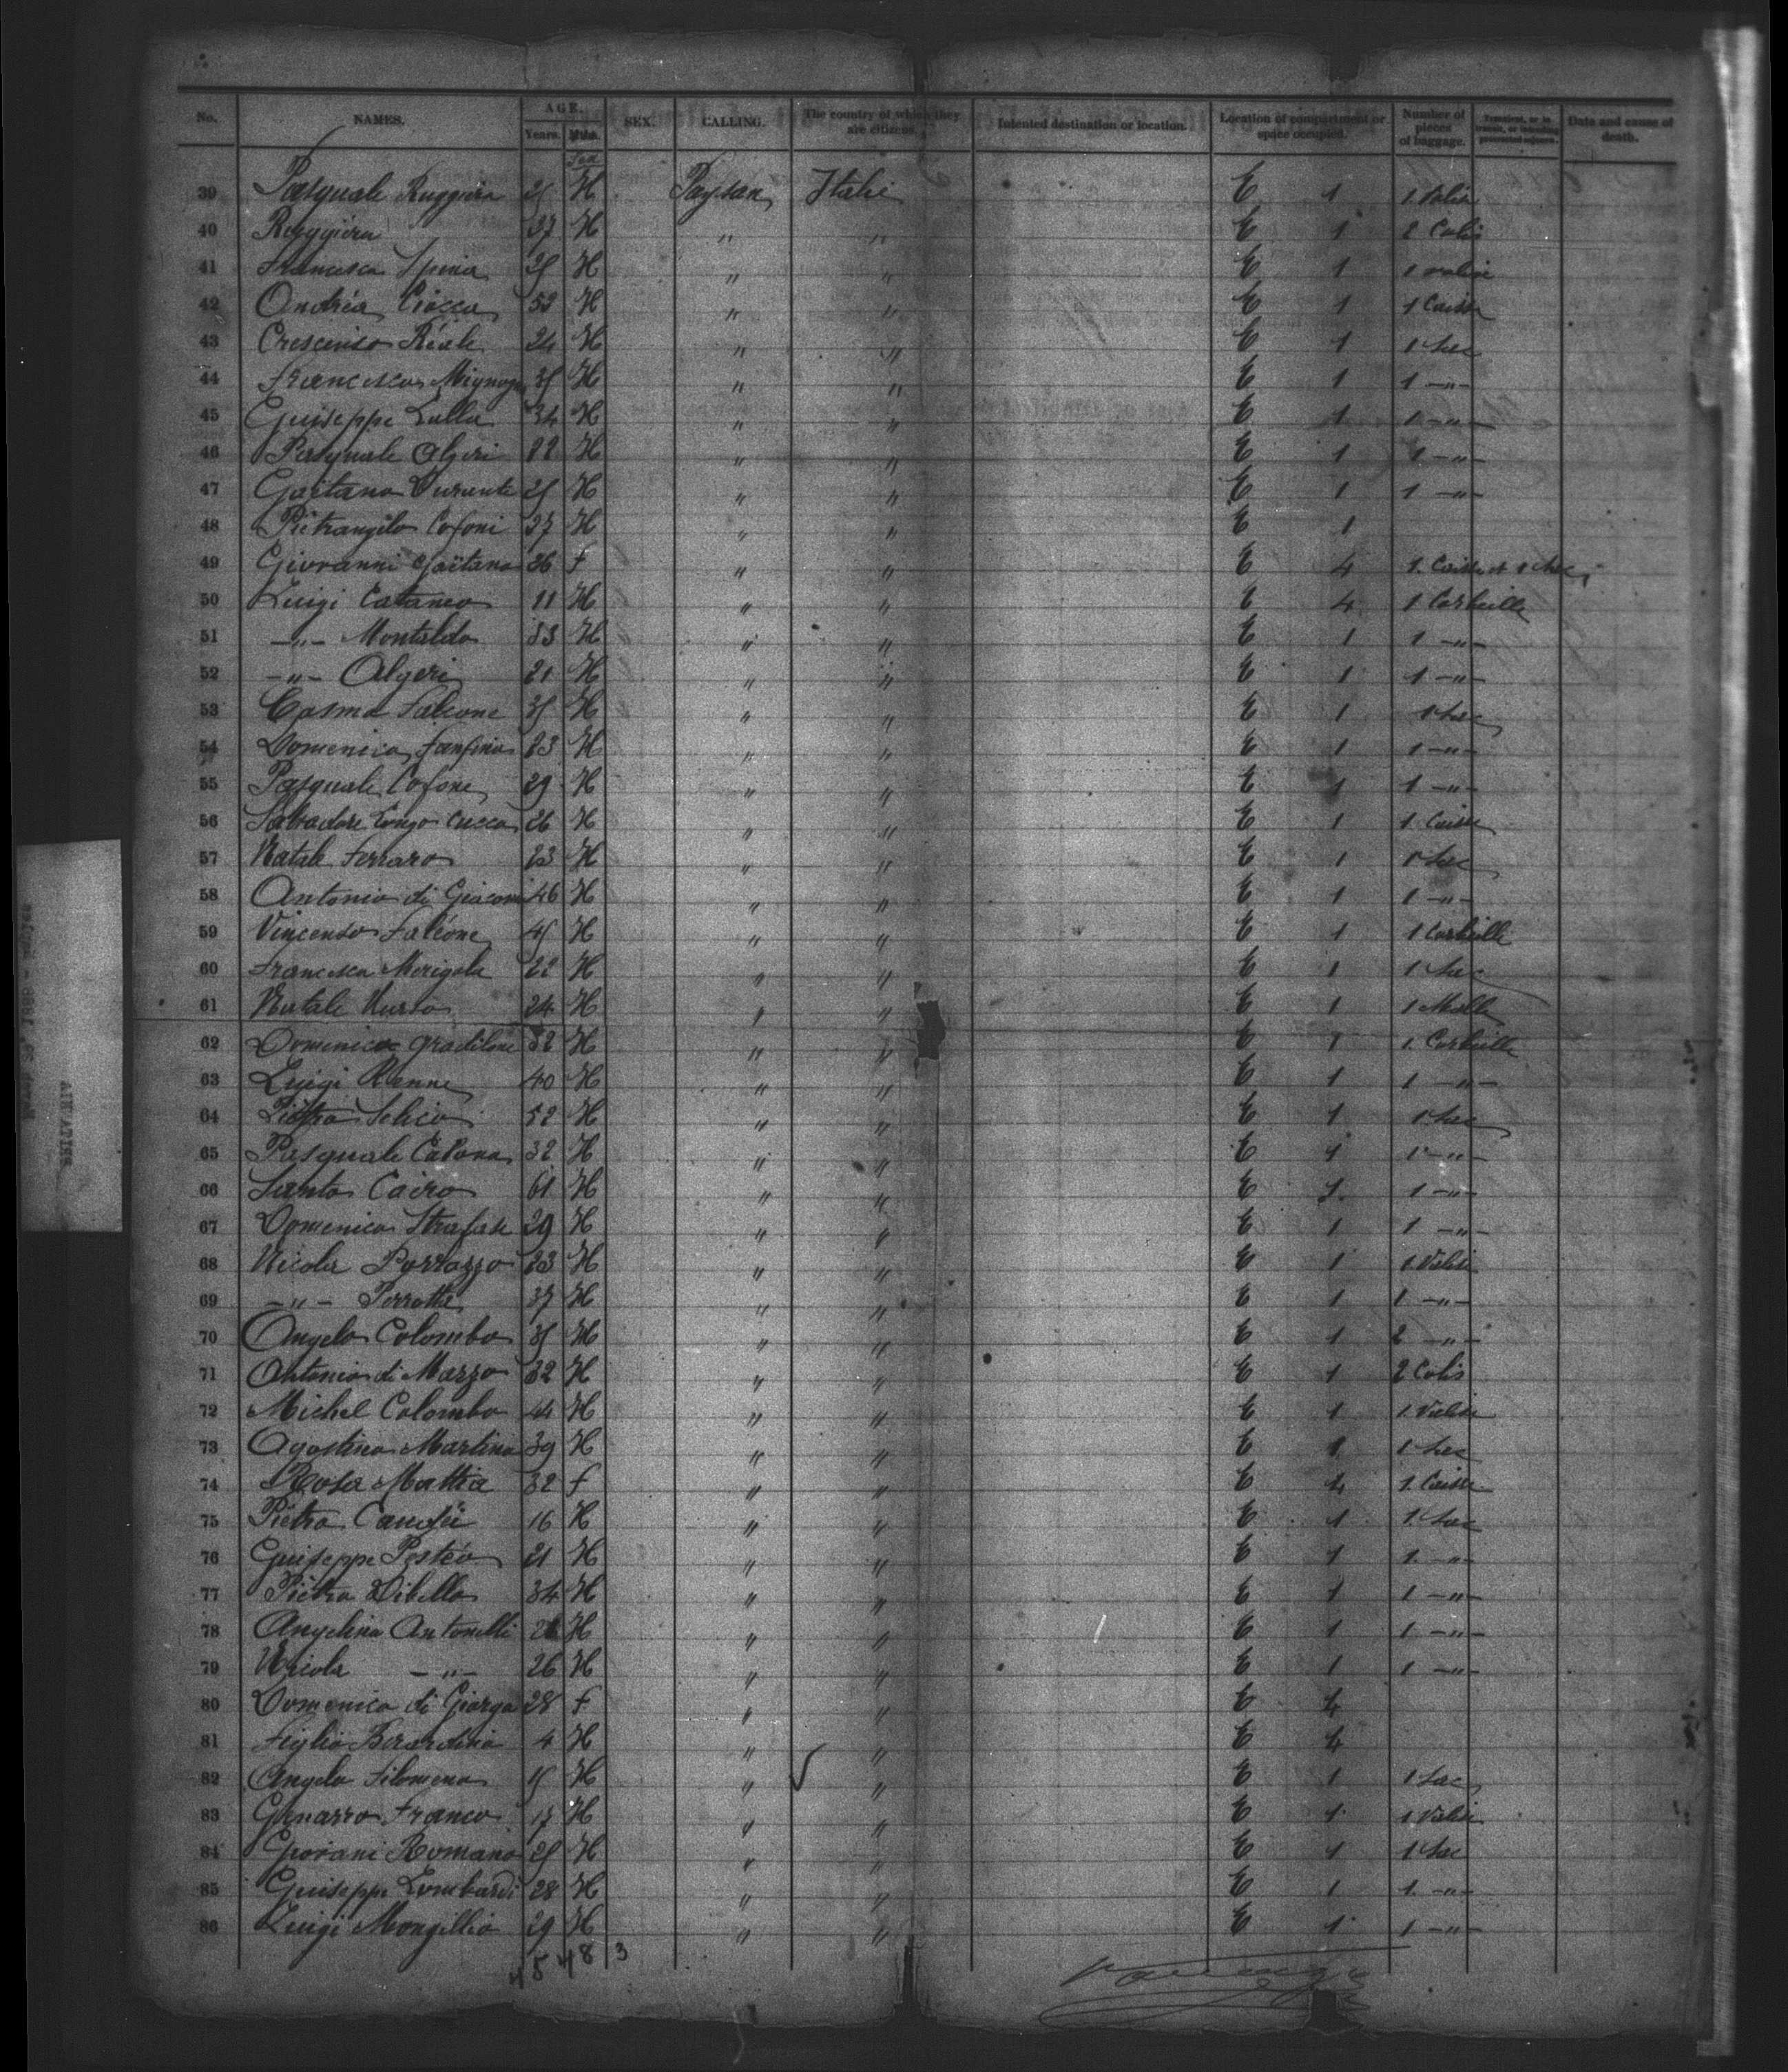 No. NAMES. AGE. Years. Mths. SEX. CALLING. The country of which they are citizens. Intented destination or location. Location of compartment or space occupied. Number of pieces of baggage. Transient, or in transit, or intending protracted sojourn. Date and cause of death.
39 Pasquale Ruggiero 25 H Paysan Italie E 1 1 Valise
40 Ruggiero 27 H " " E 1 2 Colis
41 Francesco Spina 25 H " " E 1 1 valise
42 Andréa Ciocca 52 H " " E 1 1 Caisse
43 Crescenso Réale 24 H " " E 1 1 Sac
44 Francesco Mignogna 35 H " " E 1 1 -"-
45 Guiseppe Lulla 34 H " " E 1 1 -"-
46 Pasquale Algeri 22 H " " E 1 1 -"-
47 Gaëtano Durante 25 H " " E 1 1 -"-
48 Pietrangelo Cofoni 27 H " " E 1
49 Giovanni Gaëtano 26 f " " E 4 1 Caisse et 1 Sac
50 Luigi Cataneo 11 H " " E 4 1 Corbeille
51 -"- Montaldo 33 H " " E 1 1 -"-
52 -"- Algeri 21 H " " E 1 1 -"-
53 Cosmo Falcone 35 H " " E 1 1 Sac
54 Domenico 23 H " " E 1 1 -"-
55 Pasquale Cofone 29 H " " E 1 1 -"-
56 Salvadore Longo Cucca 26 H " " E 1 1 Caisse
57 Natale Ferraro 23 H " " E 1 1 Sac
58 Antonio di Giacomi 46 H " " E 1 1 -"-
59 Vincenso Falcone 45 H " " E 1 1 Corbeille
60 Francesco Merigola 22 H " " E 1 1 Sac
61 Natale 24 H " " E 1 1 Malle
62 Domenico Gradilone 52 H " " E 1 1 Corbeille
63 Luigi Renne 40 H " " E 1 1 -"-
64 Pietro 52 H " " E 1 1 Sac
65 Pasquale Catona 32 H " " E 1 1 -"-
66 Santo Cairo 61 H " " E 1 1 -"-
67 Domenico Strafase 29 H " " E 1 1 -"-
68 Nicola Porrazzo 23 H " " E 1 1 Valise
69 -"- Perrotta 37 H " " E 1 1 -"-
70 Angelo Colombo 35 H " " E 1 2 -"-
71 Antonio di Mazzo 32 H " " E 1 2 Colis
72 Michel Colombo 44 H " " E 1 1 Valise
73 Agostino Martino 39 H " " E 1 1 Sac
74 Rosa Mattia 32 f " " E 4 1 Caisse
75 Pietro 16 H " " E 1 1 Sac
76 Guiseppe Pesteo 21 H " " E 1 1 -"-
77 Pietro Dibello 34 H " " E 1 1 -"-
78 Angelino Antonelli H " " E 1 1 -"-
79 Nicola -"- 26 H " " E 1 1 -"-
80 Domenica di Giorga 28 f " " E 4
81 Figlio Berardino 4 H " " E 4
82 Angelo Filomeno 15 H " " E 1 1 Sac
83 Genarro Franco 17 H " " E 1 1 Valise
84 Giovani Romano 25 H " " E 1 1 Sac
85 Guiseppe Lombardi 28 H " " E 1 1 -"-
86 Luigi Mongillio 29 H " " E 1 1 -"-
45 48 3